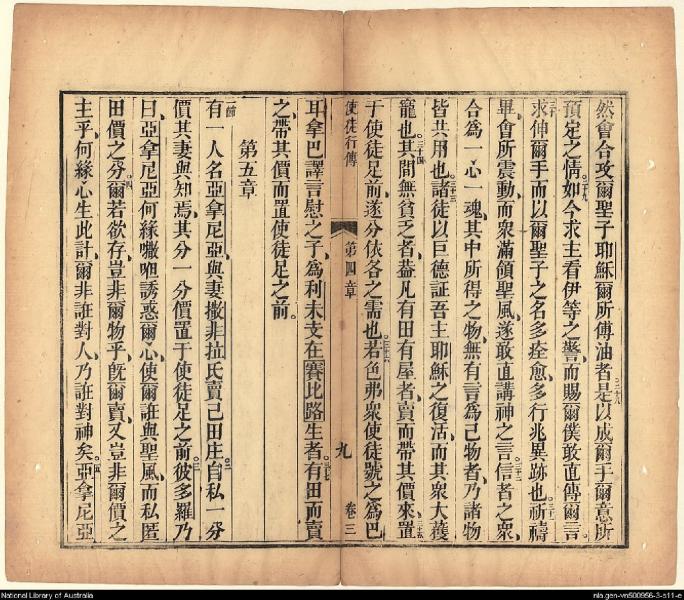 然會合攻爾聖子耶穌爾所傅油者是以成爾手爾意所
預定之情如今求主看伊等之警而賜爾僕敢直傳爾言
求伸爾手而以爾聖子之名多痊愈多行兆異跡也祈禱
畢會所震動而衆滿領聖風遂敢直講神之言信者之衆
合為一心一魂其中所得之物無有言為己物者乃諸物
皆共用也諸徒以巨德証吾主耶穌之復活而其衆大獲
寵也其間無貧乏者葢凡有田有屋者賣而帶其價來置
于使徒足前遂分俵各之需也若色弗衆使徒號之為巴
使徒行傳 第四章 九 卷三
耳拿巴譯言慰之子為利未支在賽比路生者有田而賣
之帶其價而置使徒足之前
第五章
有一人名亞拿尼亞與妻撒非拉氏賣己田庄自私一分
價其妻與知焉其分一分價置于使徒足之前彼多羅乃
曰亞拿尼亞何緣𠹌呾誘惑爾心使爾誑與聖風而私匿
田價之分爾若欲存豈非爾物乎旣爾賣又豈非爾價之
主乎何緣心生此計爾非誑對人乃誑對神矣亞拿尼亞
National Library of Australia
nla.gen-vn500956-3-s11-e